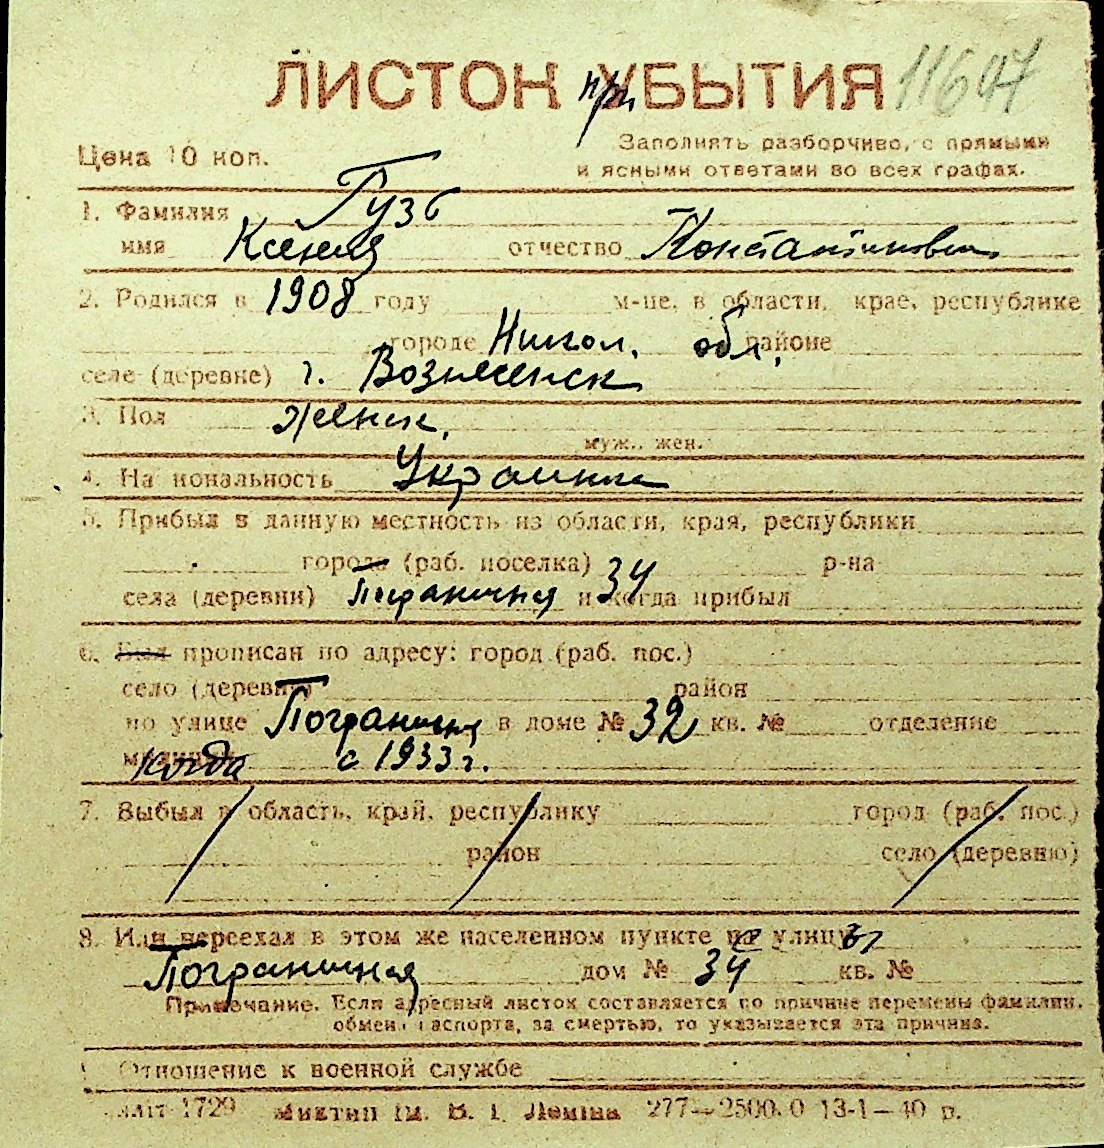 ЛИСТОК при УБЫТИЯ 11647
Цена 10 коп.
Заполнять разборчиво, с прямыми
и ясными ответами во всех графах.
1. Фамилия Гузь
имя Ксения отчество Константиновна
2. Родился в 1908 году м-це, в области, крае, республике
городе Никол. обл. районе
селе (деревне) г. Вознесенск
3. Пол женск.
муж., жен.
4. Национальность Украинка
5. Прибыл в данную местность из области, края, республики
города (раб. поселка) 34 р-на
села (деревни) Пограничная и когда прибыл
6. Был прописан по адресу: город (раб. пос.)
село (деревня) район
по улице Пограничная в доме № 32 кв. № отделение
милиции когда с 1933 г.
7. Выбыл в область, край, республику город (раб. пос.)
район село (деревню)
8. Или переехал в этом же населенном пункте с улицы
Пограничная дом № 34 кв. №
Примечание. Если адресный листок составляется по причине перемены фамилии,
обмен паспорта, за смертью, то указывается эта причина.
Отношение к военной службе
1729 Миктип ім. В. І. Леніна 277—2500.0 13-1—40 р.